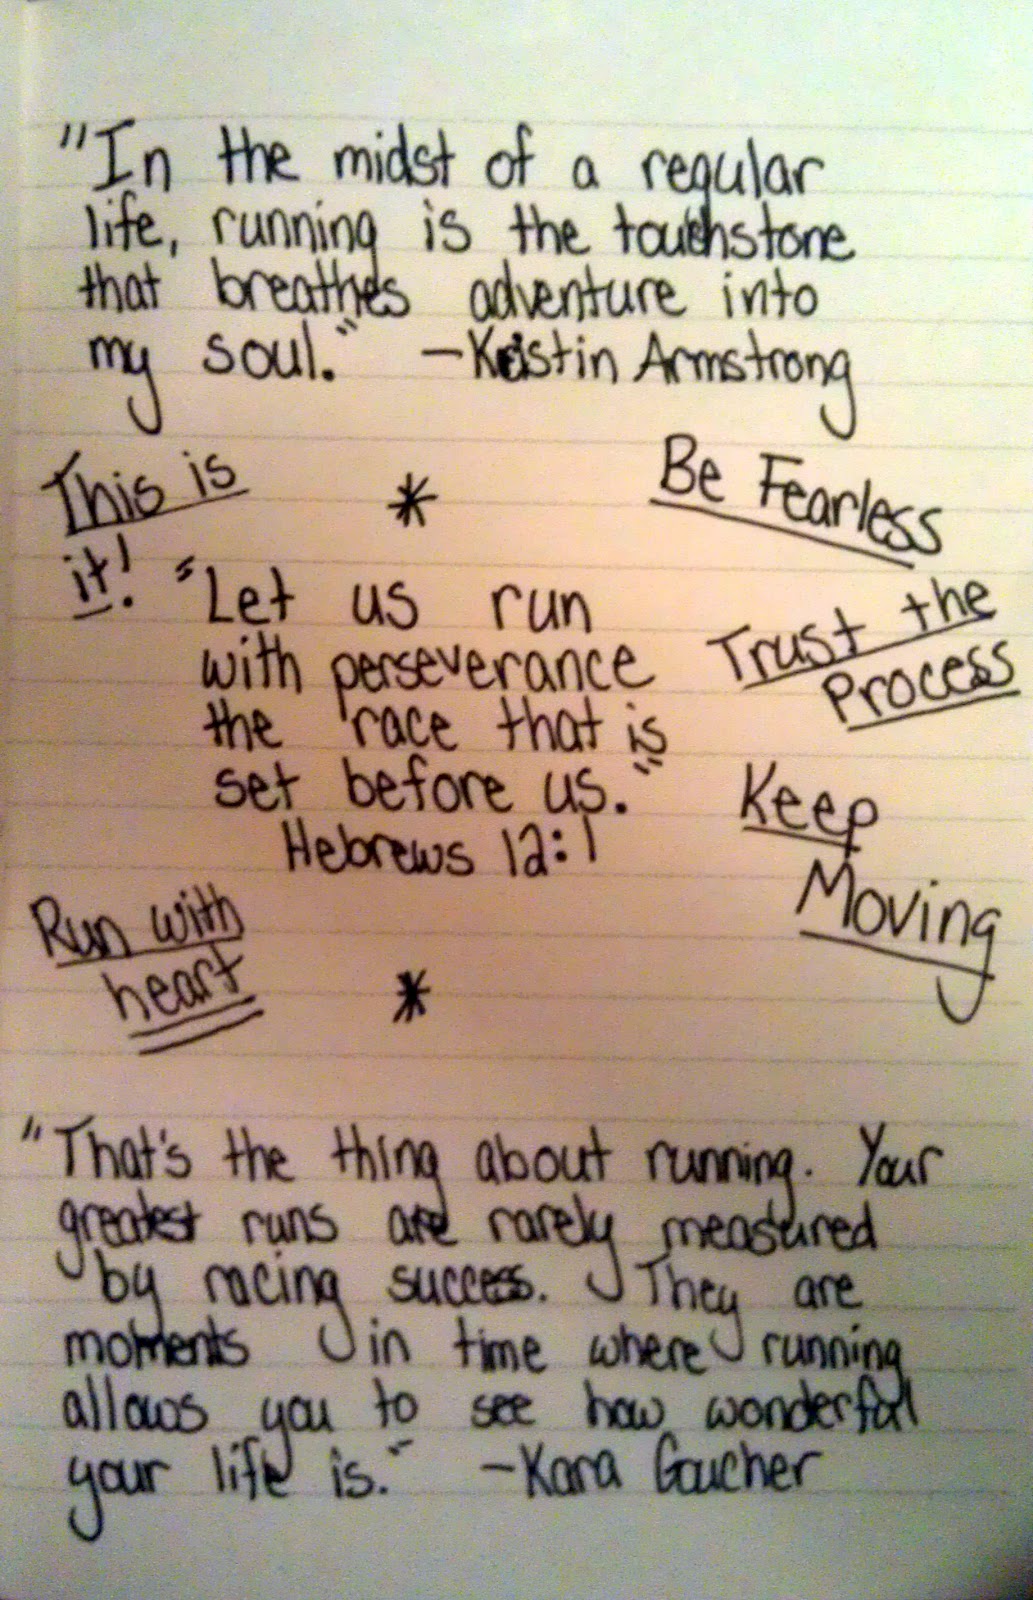 "In the midst of a regular
life, running is the touchstone
that breathes adventure into
my soul." —Kristin Armstrong
This is
it!
*
Be Fearless
"Let us run
with perseverance
the race that is
set before us."
Hebrews 12:1
Trust the
Process
Keep
Moving
Run with
heart
*
"That's the thing about running. Your
greatest runs are rarely measured
by racing success. They are
moments in time where running
allows you to see how wonderful
your life is." —Kara Goucher